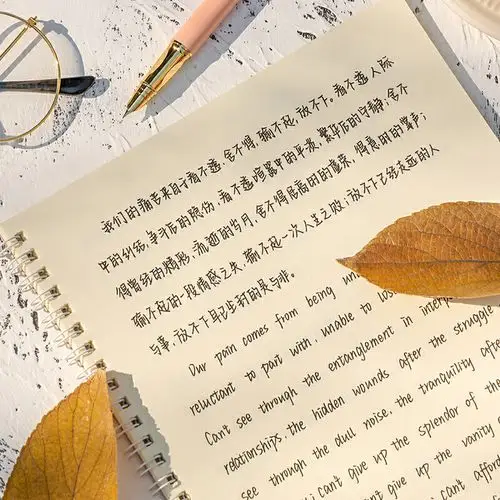 我们的痛苦来自于看不透,舍不得,输不起,放不下。看不透人际
中的纠结,争斗后的隐伤,看不透喧嚣中的平淡,繁华后的宁静;舍不
得曾经的精彩,流逝的岁月,舍不得居高时的虚荣,得意时的掌声;
输不起的一段情感之失,输不起一次人生之败;放不下已经走远的人
与事,放不下早已尘封的是与非。
Our pain comes from being un
reluctant to part with, unable to los
Can't see through the entanglement in interp
relationships, the hidden wounds after the struggle
see through the dull noise, the tranquility after
Can't give up the splendor of th
can't give up the vanity o
can't afford